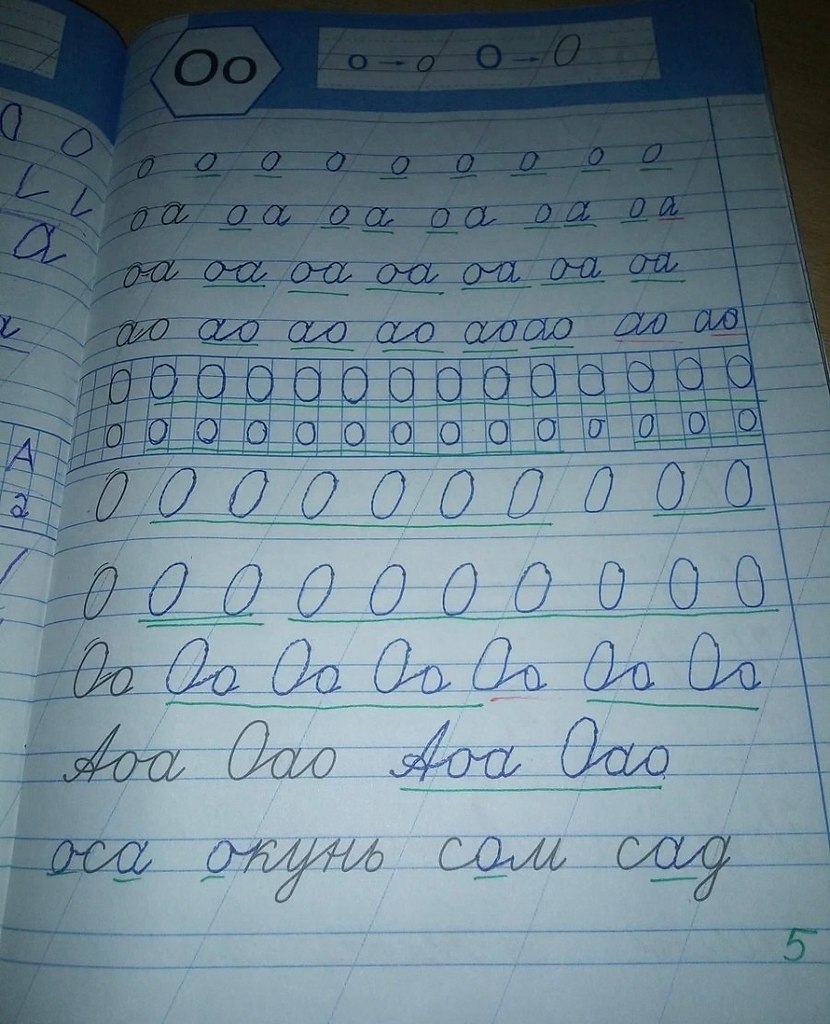 Оо о → о О → О
о о о о о о о о о
о а о а о а о а о а о а
оа оа оа оа оа оа оа
ао ао ао ао ао ао ао ао
О О О О О О О О О О О О О О
о о о о о о о о о о о о о о
О О О О О О О О О О
О О О О О О О О О О
Оо Оо Оо Оо Оо Оо Оо
Аоа Оао Аоа Оао
оса окунь сом сад
5